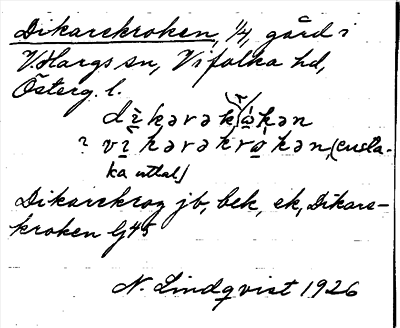 Dikarekroken, 1/4, gård i
V. Hargs sn, Vifolka hd,
Österg. l.
dìkərək(r)ókən
? vìkərəkrokən, (ensta-
ka uttal)
Dikarekrog jb, bek, ek, Dikare-
kroken Gj45
N. Lindqvist 1926